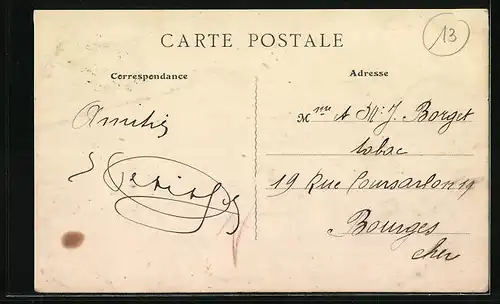 CARTE POSTALE
13
Correspondance
Adresse
Amitiés
Mme et Mr J. Borget
tabac
19 Rue Coursarlon 19
Bourges
Cher